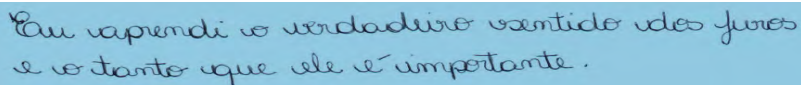 Eu aprendi o verdadeiro sentido dos juros
e o tanto que ele é importante.